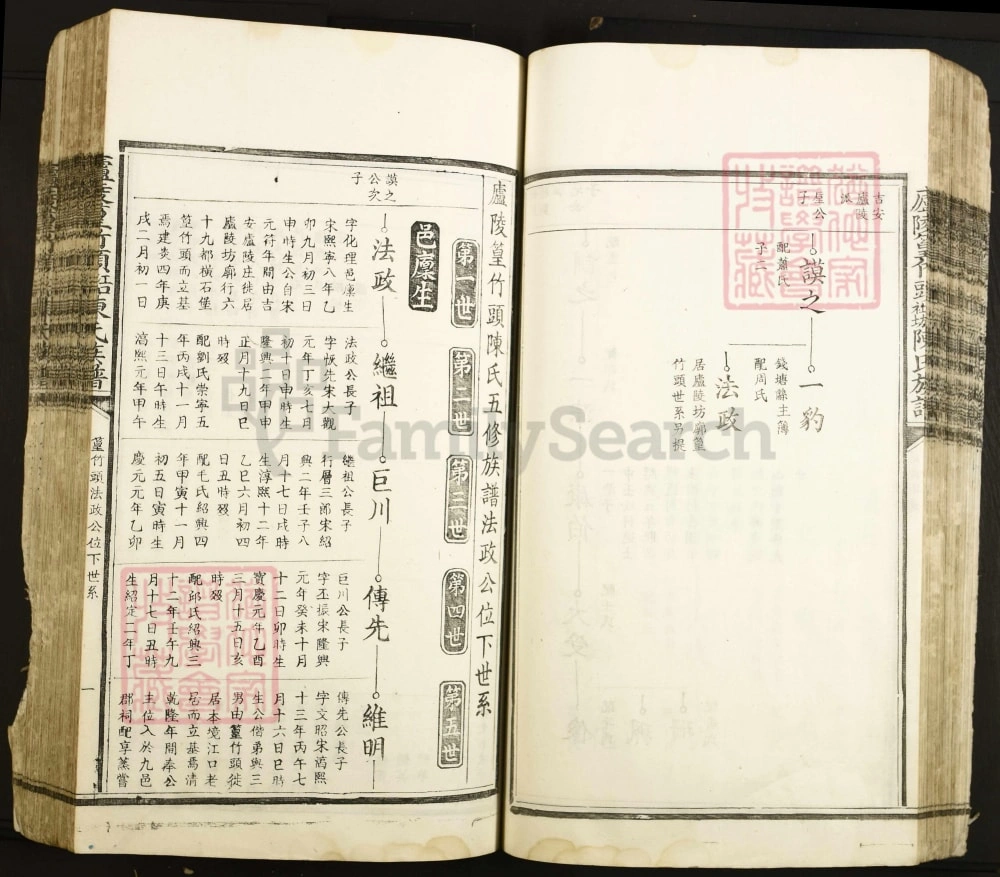 吉安
廬陵
星公
子
謨之
配蕭氏
子二
一豹
錢塘縣主簿
配周氏
法政
居廬陵坊廓篁
竹頭世系另提
廬陵篁竹頭陳氏五修族譜法政公位下世系
第一世
第二世
第三世
第四世
第五世
邑廩生
謨之
公次
子
法政
字化理邑廩生
宋熙寧八年乙
卯九月初三日
申時生公自宋
元符年間由吉
安廬陵庄徙居
廬陵坊廓行六
十九都橫石堡
篁竹頭而立基
焉建炎四年庚
戌二月初一日
繼祖
法政公長子
字恢先宋大觀
元年丁亥七月
初十日申時生
隆興二年甲申
正月十九日巳
時歿
配劉氏崇寧五
年丙戌十一月
十三日午時生
淳熙元年甲午
巨川
繼祖公長子
行層三郎宋紹
興二年壬子八
月十七日戌時
生淳熙十二年
乙巳六月初四
日丑時歿
配毛氏紹興四
年甲寅十一月
初五日寅時生
慶元元年乙卯
傳先
巨川公長子
字丕振宋隆興
元年癸未十月
十二日卯時生
寶慶元年乙酉
三月十五日亥
時歿
配邱氏紹興三
十二年壬午九
月十七日丑時
生紹定二年丁
維明
傳先公長子
字文昭宋淳熙
十三年丙午七
月十六日巳時
生公偕弟與三
男由篁竹頭徙
居本境江口老
居而立基焉清
乾隆年間奉公
主位入於九邑
郡祠配享蒸嘗
篁竹頭法政公位下世系
一
FamilySearch